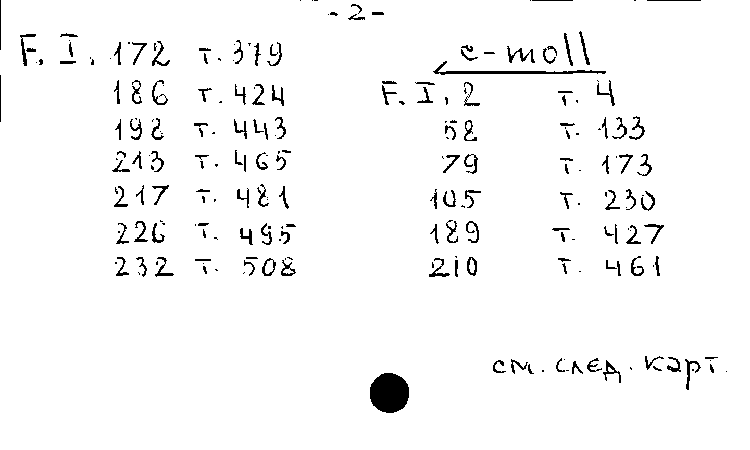 - 2 -
F. I. 172 т. 379
186 т. 424
198 т. 443
213 т. 465
217 т. 481
226 т. 495
232 т. 508
c-moll
F. I. 2 т. 4
58 т. 133
79 т. 173
105 т. 230
189 т. 427
210 т. 461
см. след. карт.